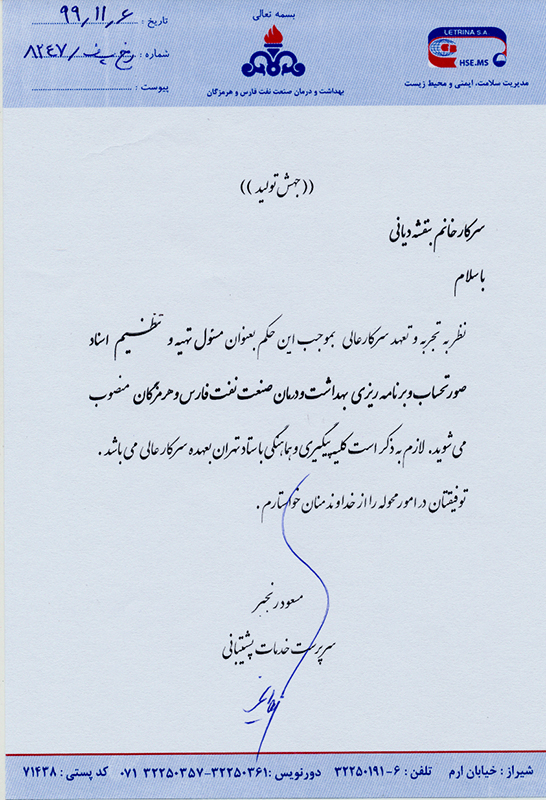 بسمه تعالی
بهداشت و درمان صنعت نفت فارس و هرمزگان
LETRINA S.A
HSE.MS
مدیریت سلامت، ایمنی و محیط زیست
تاریخ : ۹۹/۱۱/۶
شماره : /۸۲۴۷
پیوست :
((جهش تولید))
سرکار خانم بنفشه دیانی
با سلام
نظر به تجربه و تعهد سرکار عالی بموجب این حکم بعنوان مسئول تهیه و تنظیم اسناد
صورتحساب و برنامه ریزی بهداشت و درمان صنعت نفت فارس و هرمزگان منصوب
می شوید. لازم به ذکر است کلیه پیگیری و هماهنگی با ستاد تهران بعهده سرکار عالی می باشد .
توفیقتان در امور محوله را از خداوند منان خواستارم .
مسعود رنجبر
سرپرست خدمات پشتیبانی
شیراز : خیابان ارم تلفن : ۶-۳۲۲۵۰۱۹۱ دورنویس : ۳۲۲۵۰۳۶۱-۳۲۲۵۰۳۵۷ ۰۷۱ کد پستی : ۷۱۴۳۸